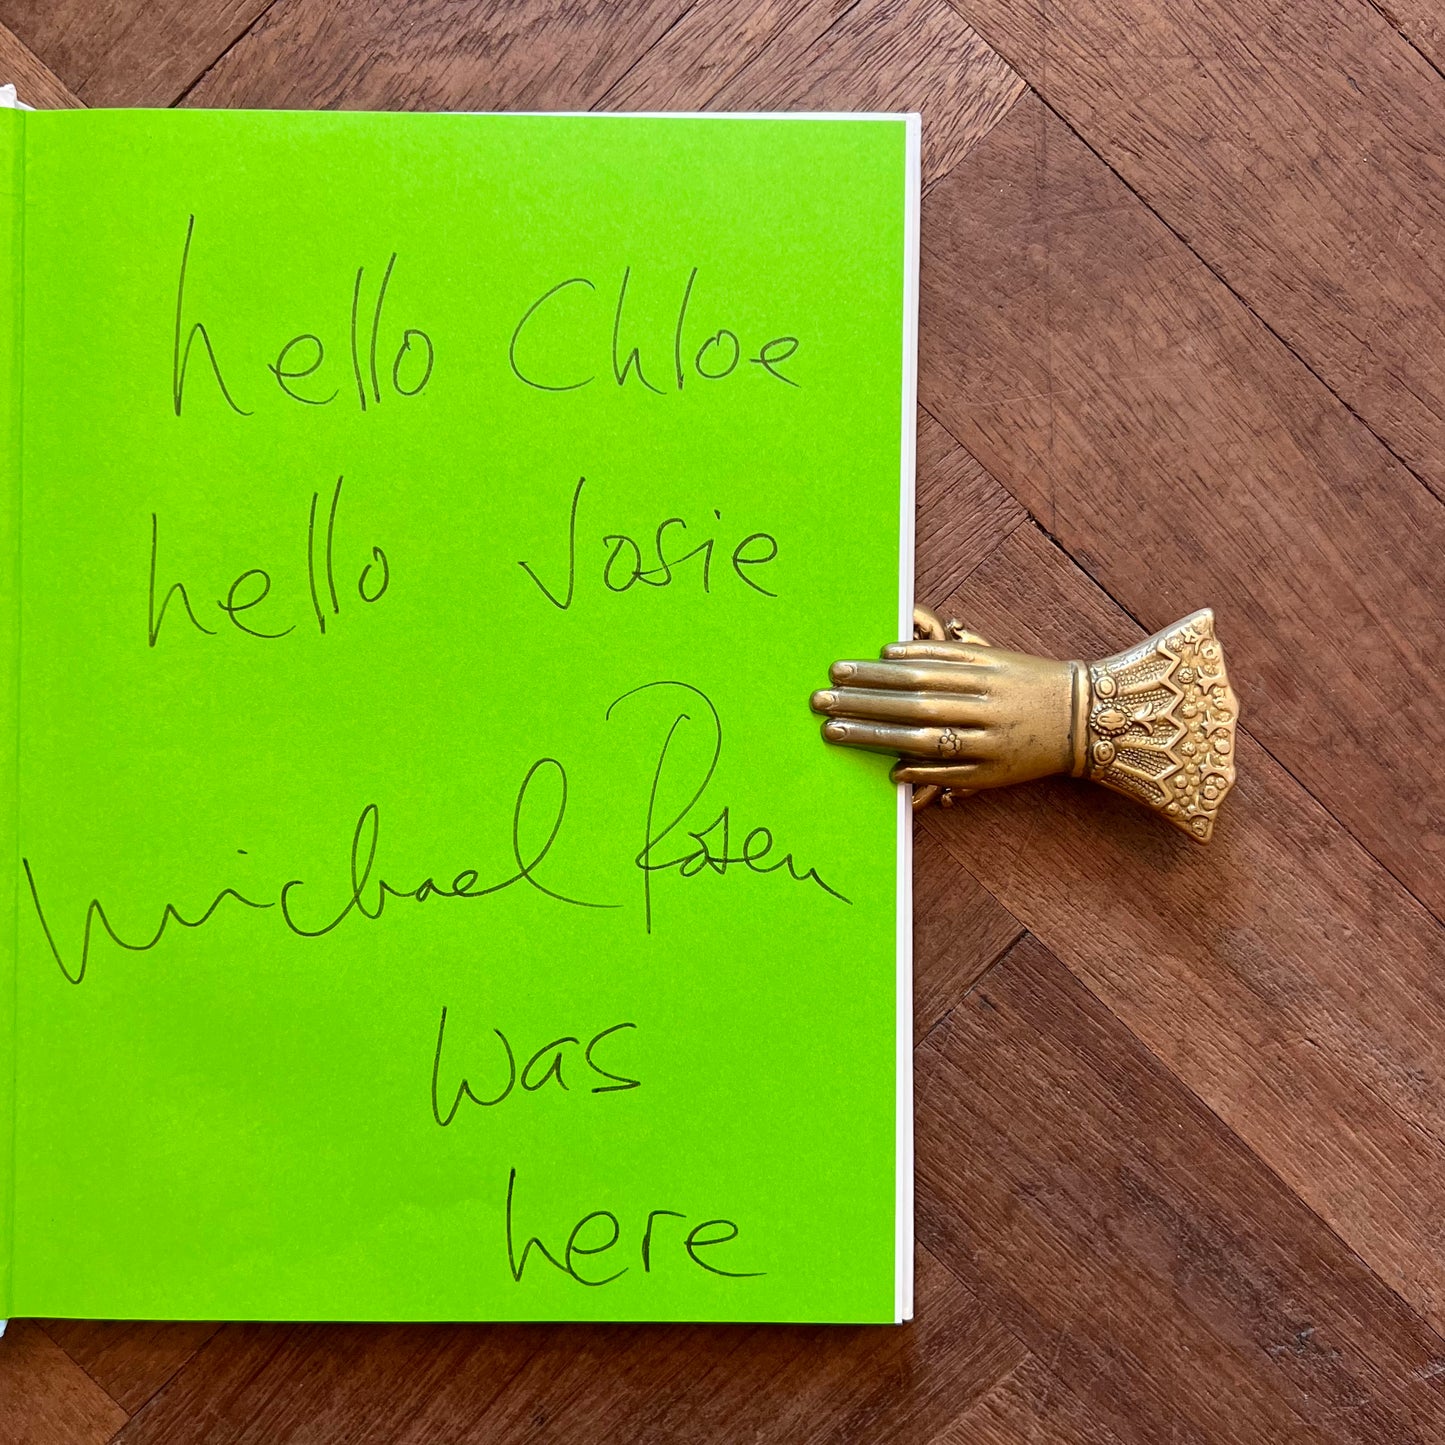 hello Chloe
hello Josie
Michael Rosen
was
here